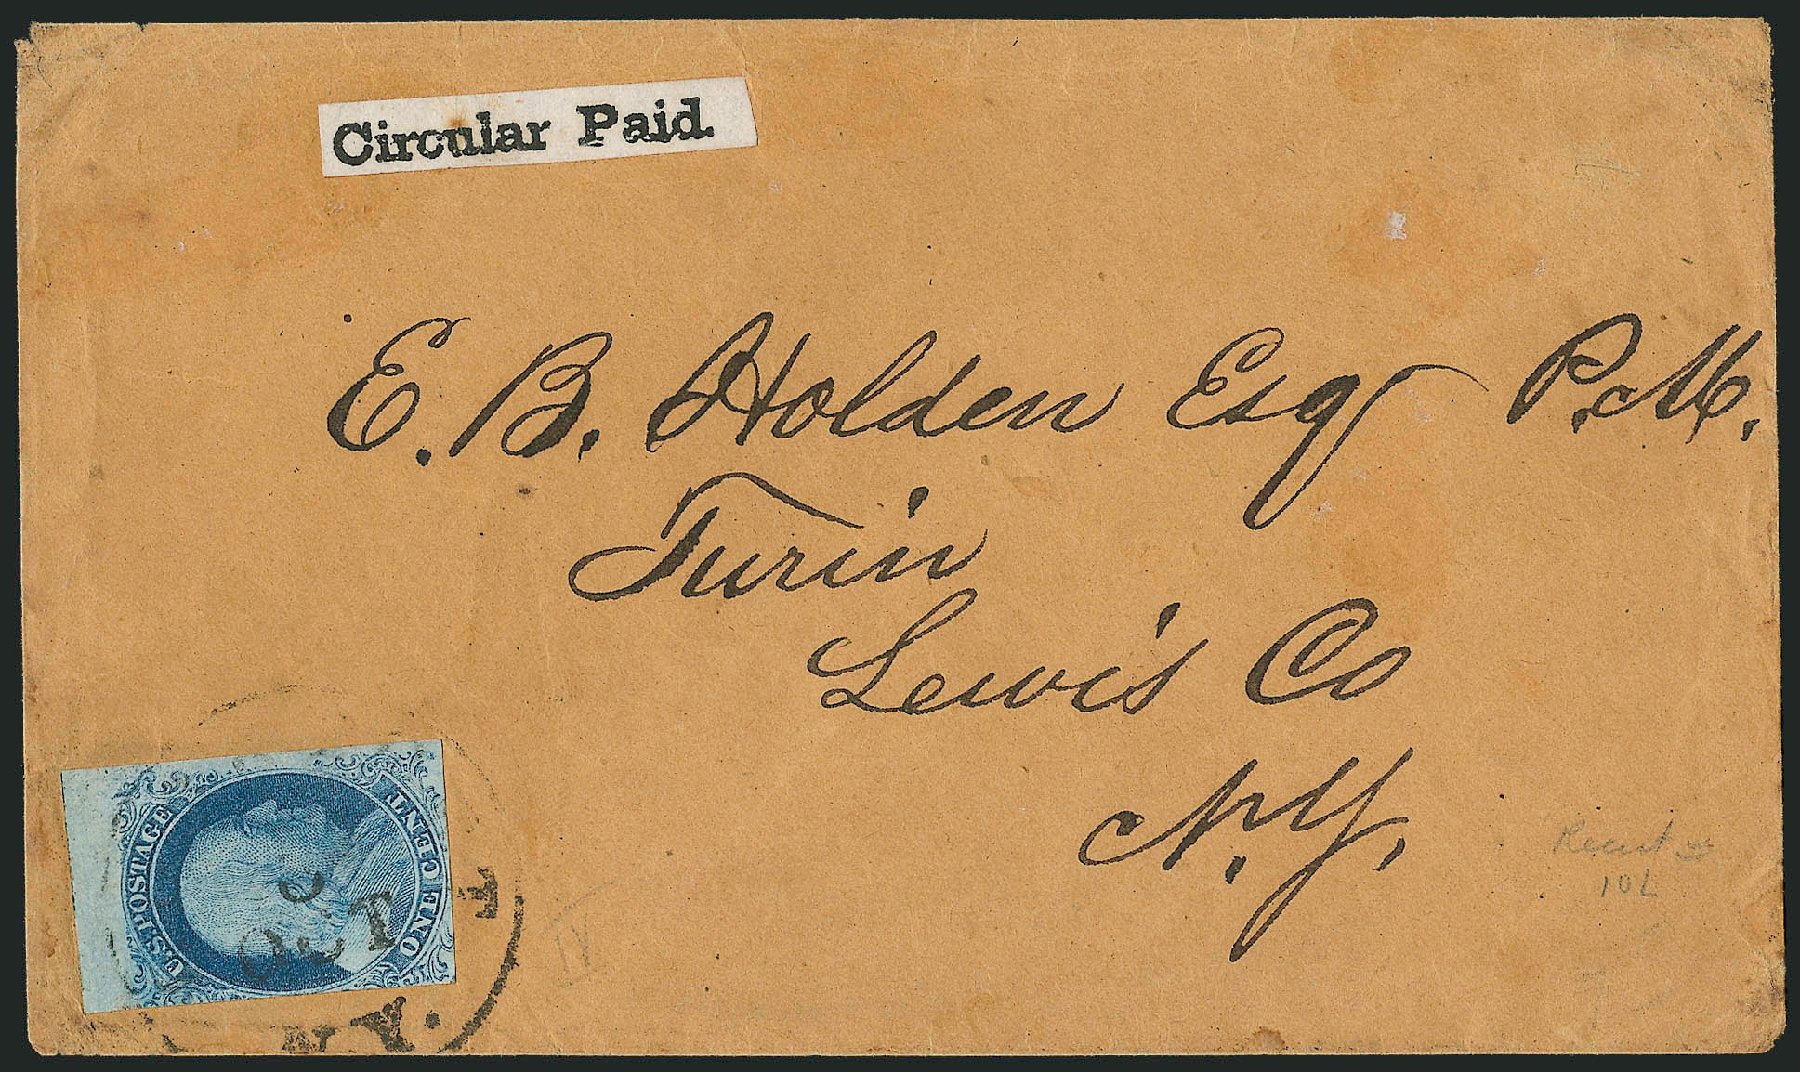 Circular Paid.
E. B. Holden Esq P.M.
Turin
Lewis Co
N.Y.
U.S. POSTAGE
ONE CENT.
OCT
N.Y.
IV
10L